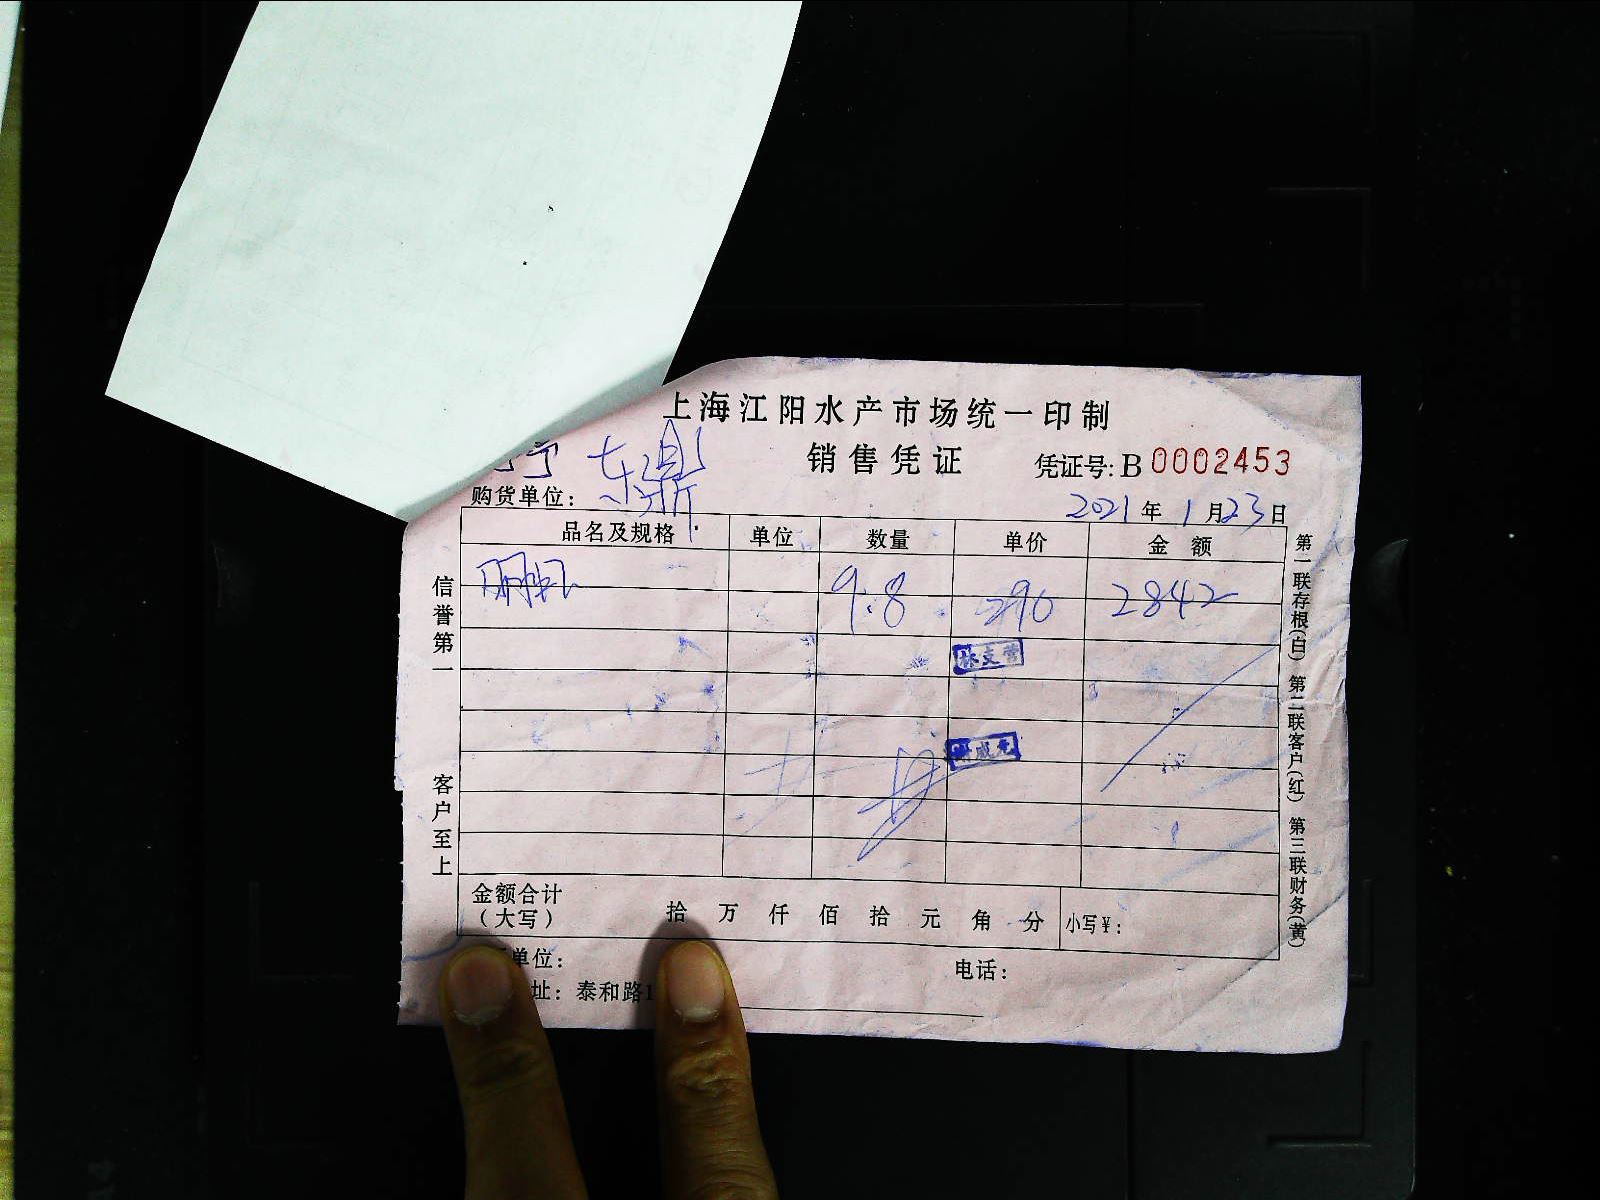 上海江阳水产市场统一印制
销售凭证
凭证号: B 0002453
购货单位： 东鼎
2021 年 1 月 23 日
品名及规格 单位 数量 单价 金额
9.8 290 2842
林支营
金额合计
（大写） 拾 万 仟 佰 拾 元 角 分 小写￥:
单位：
电话：
址：泰和路1
信誉第一
客户至上
第一联存根(白) 第二联客户(红) 第三联财务(黄)